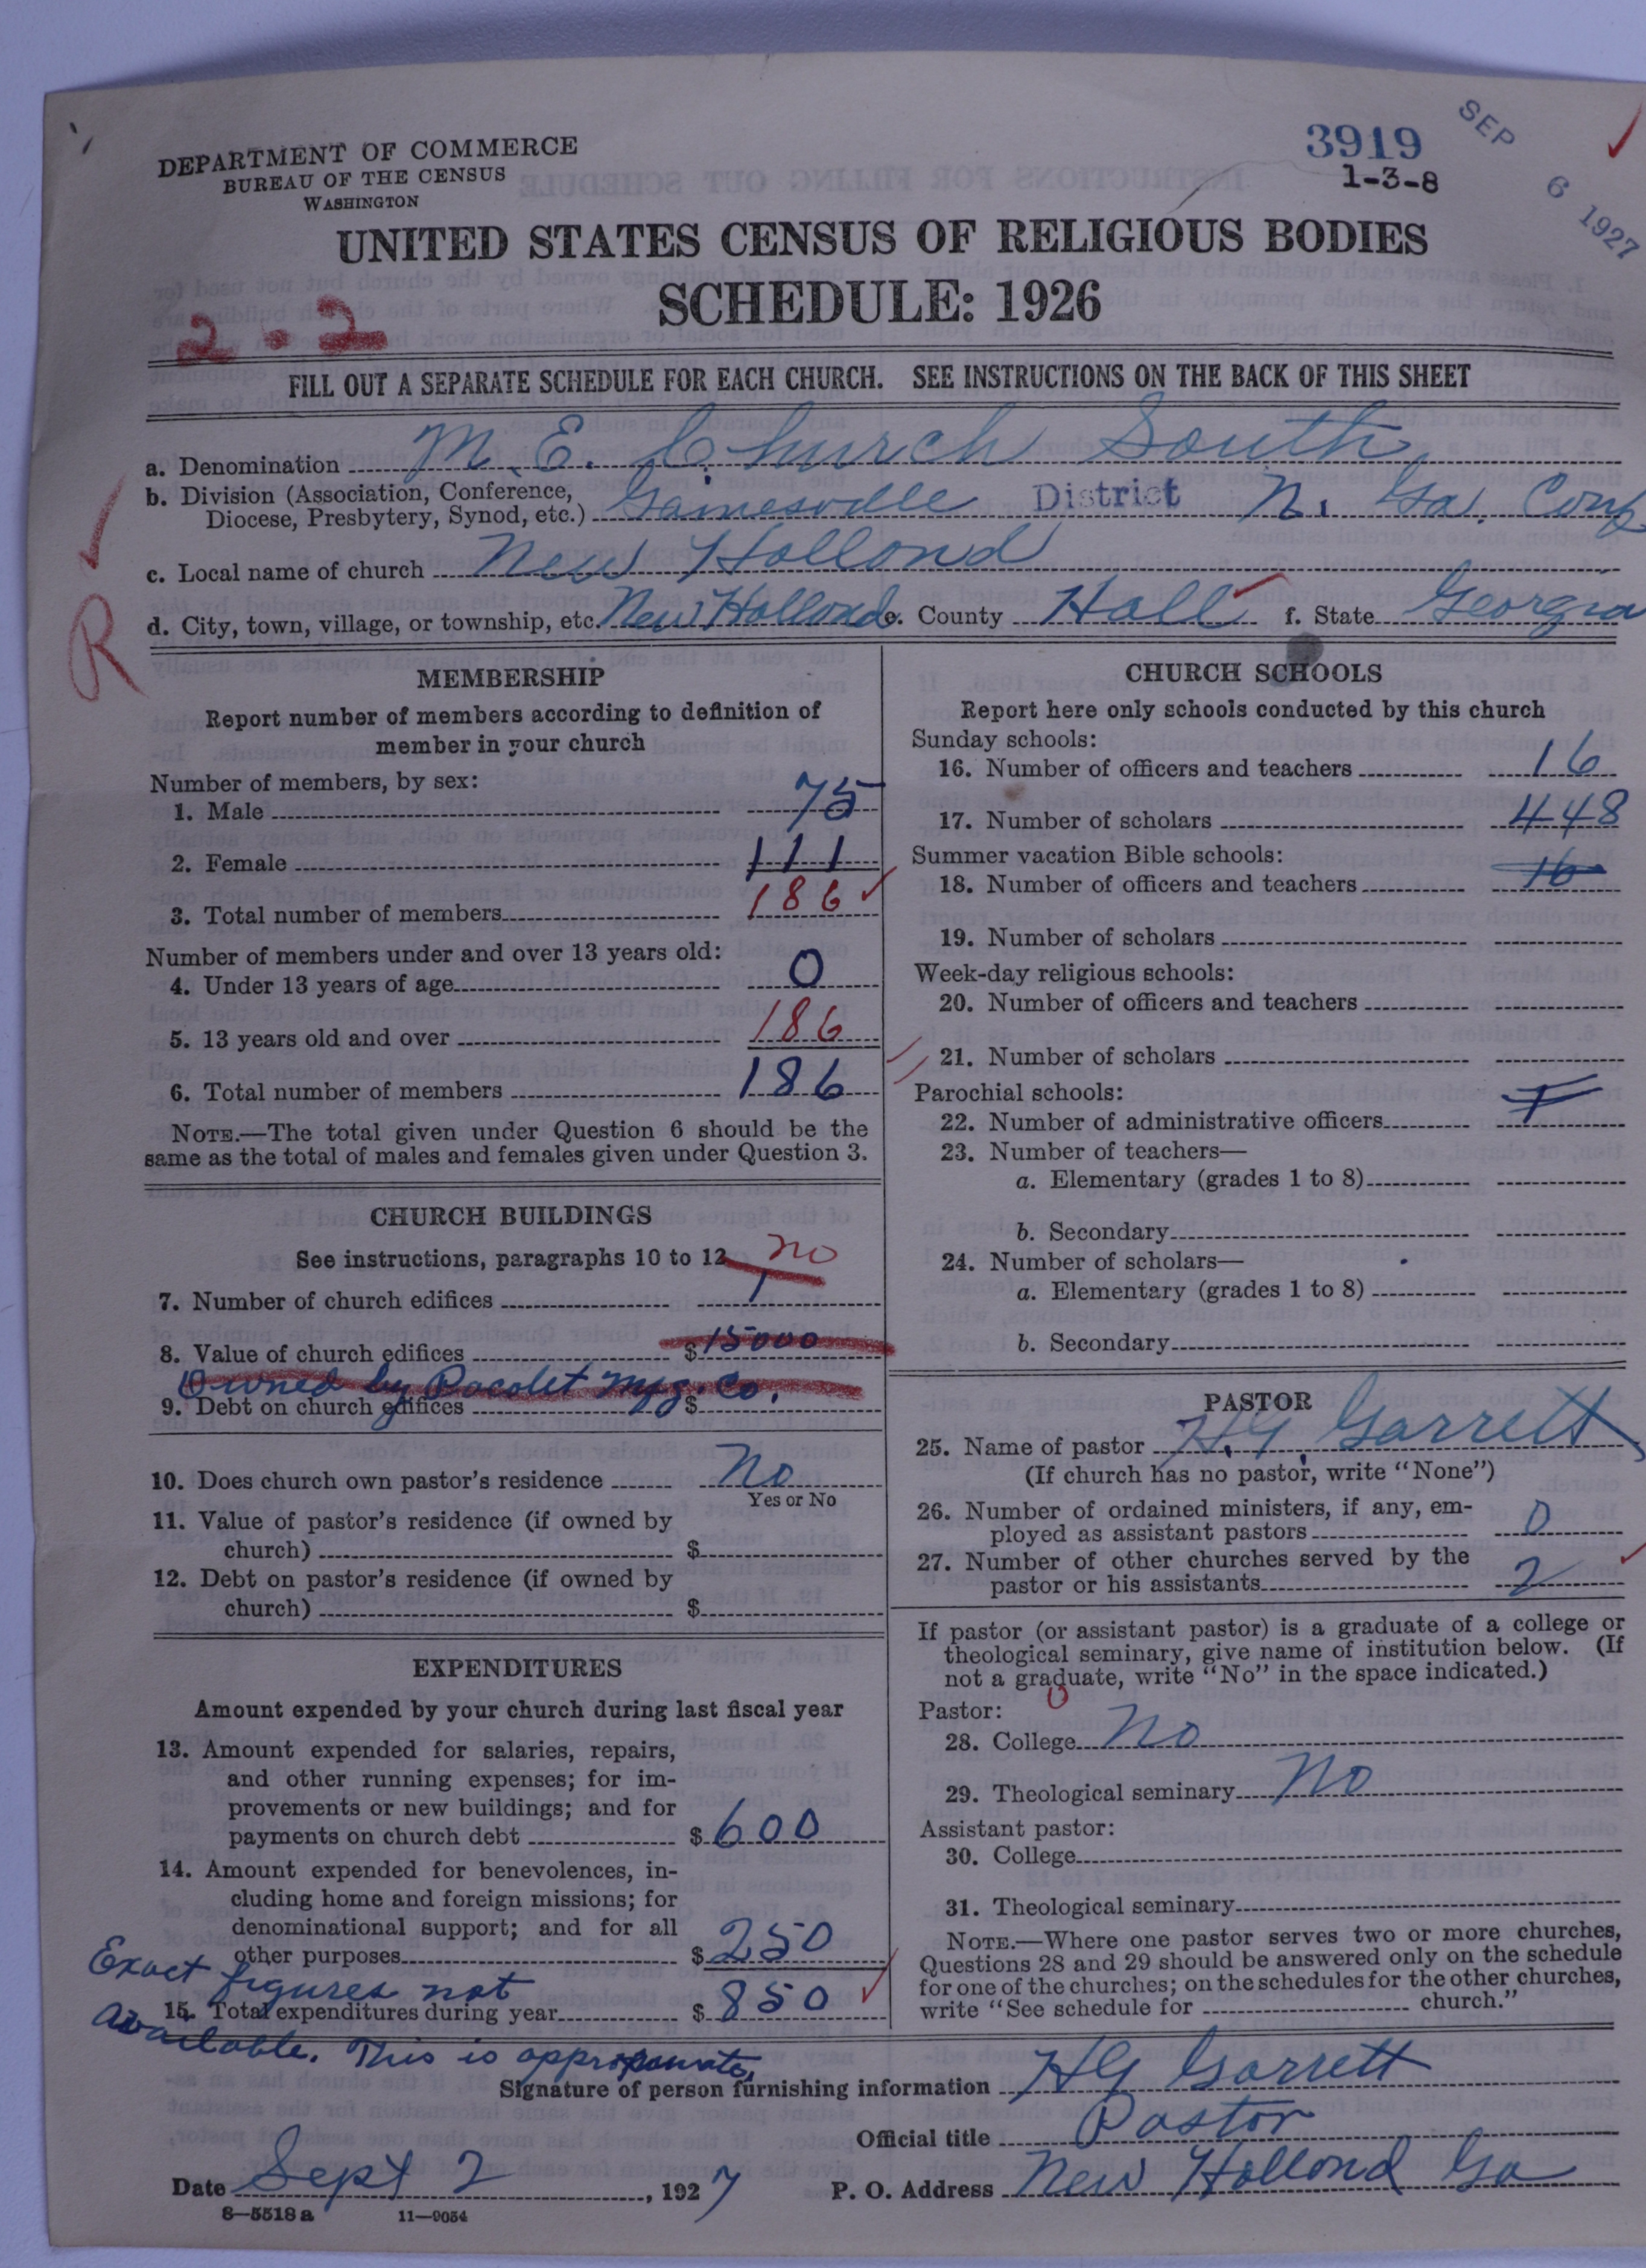 DEPARTMENT OF COMMERCE
BUREAU OF THE CENSUS
WASHINGTON
3919
1-3-8
SEP 6 1927
UNITED STATES CENSUS OF RELIGIOUS BODIES
SCHEDULE: 1926
2-2
FILL OUT A SEPARATE SCHEDULE FOR EACH CHURCH. SEE INSTRUCTIONS ON THE BACK OF THIS SHEET
a. Denomination M. E. Church South
b. Division (Association, Conference,
Diocese, Presbytery, Synod, etc.) Gainesville District N. Ga. Conf
c. Local name of church New Holland
d. City, town, village, or township, etc. New Holland e. County Hall f. State Georgia
R
MEMBERSHIP
Report number of members according to definition of
member in your church
Number of members, by sex:
1. Male 75
2. Female 111
3. Total number of members 186
Number of members under and over 13 years old:
4. Under 13 years of age 0
5. 13 years old and over 186
6. Total number of members 186
NOTE.—The total given under Question 6 should be the
same as the total of males and females given under Question 3.
CHURCH BUILDINGS
See instructions, paragraphs 10 to 12
no
7. Number of church edifices 1
8. Value of church edifices $15000
Owned by Pacolet Mfg. Co.
9. Debt on church edifices $
10. Does church own pastor's residence No
Yes or No
11. Value of pastor's residence (if owned by
church) $
12. Debt on pastor's residence (if owned by
church) $
EXPENDITURES
Amount expended by your church during last fiscal year
13. Amount expended for salaries, repairs,
and other running expenses; for im-
provements or new buildings; and for
payments on church debt $600
14. Amount expended for benevolences, in-
cluding home and foreign missions; for
denominational support; and for all
other purposes $250
15. Total expenditures during year $850
Exact figures not
available. This is approximate.
CHURCH SCHOOLS
Report here only schools conducted by this church
Sunday schools:
16. Number of officers and teachers 16
17. Number of scholars 448
Summer vacation Bible schools:
18. Number of officers and teachers 16
19. Number of scholars
Week-day religious schools:
20. Number of officers and teachers
21. Number of scholars
Parochial schools:
22. Number of administrative officers
23. Number of teachers—
a. Elementary (grades 1 to 8)
b. Secondary
24. Number of scholars—
a. Elementary (grades 1 to 8)
b. Secondary
PASTOR
25. Name of pastor H. G. Garrett
(If church has no pastor, write "None")
26. Number of ordained ministers, if any, em-
ployed as assistant pastors 0
27. Number of other churches served by the
pastor or his assistants 2
If pastor (or assistant pastor) is a graduate of a college or
theological seminary, give name of institution below. (If
not a graduate, write "No" in the space indicated.)
Pastor: 0
28. College No
29. Theological seminary No
Assistant pastor:
30. College
31. Theological seminary
NOTE.—Where one pastor serves two or more churches,
Questions 28 and 29 should be answered only on the schedule
for one of the churches; on the schedules for the other churches,
write "See schedule for church."
Signature of person furnishing information HG Garrett
Official title Pastor
Date Sept 2, 1927 P. O. Address New Holland Ga
8—5518a 11—9054